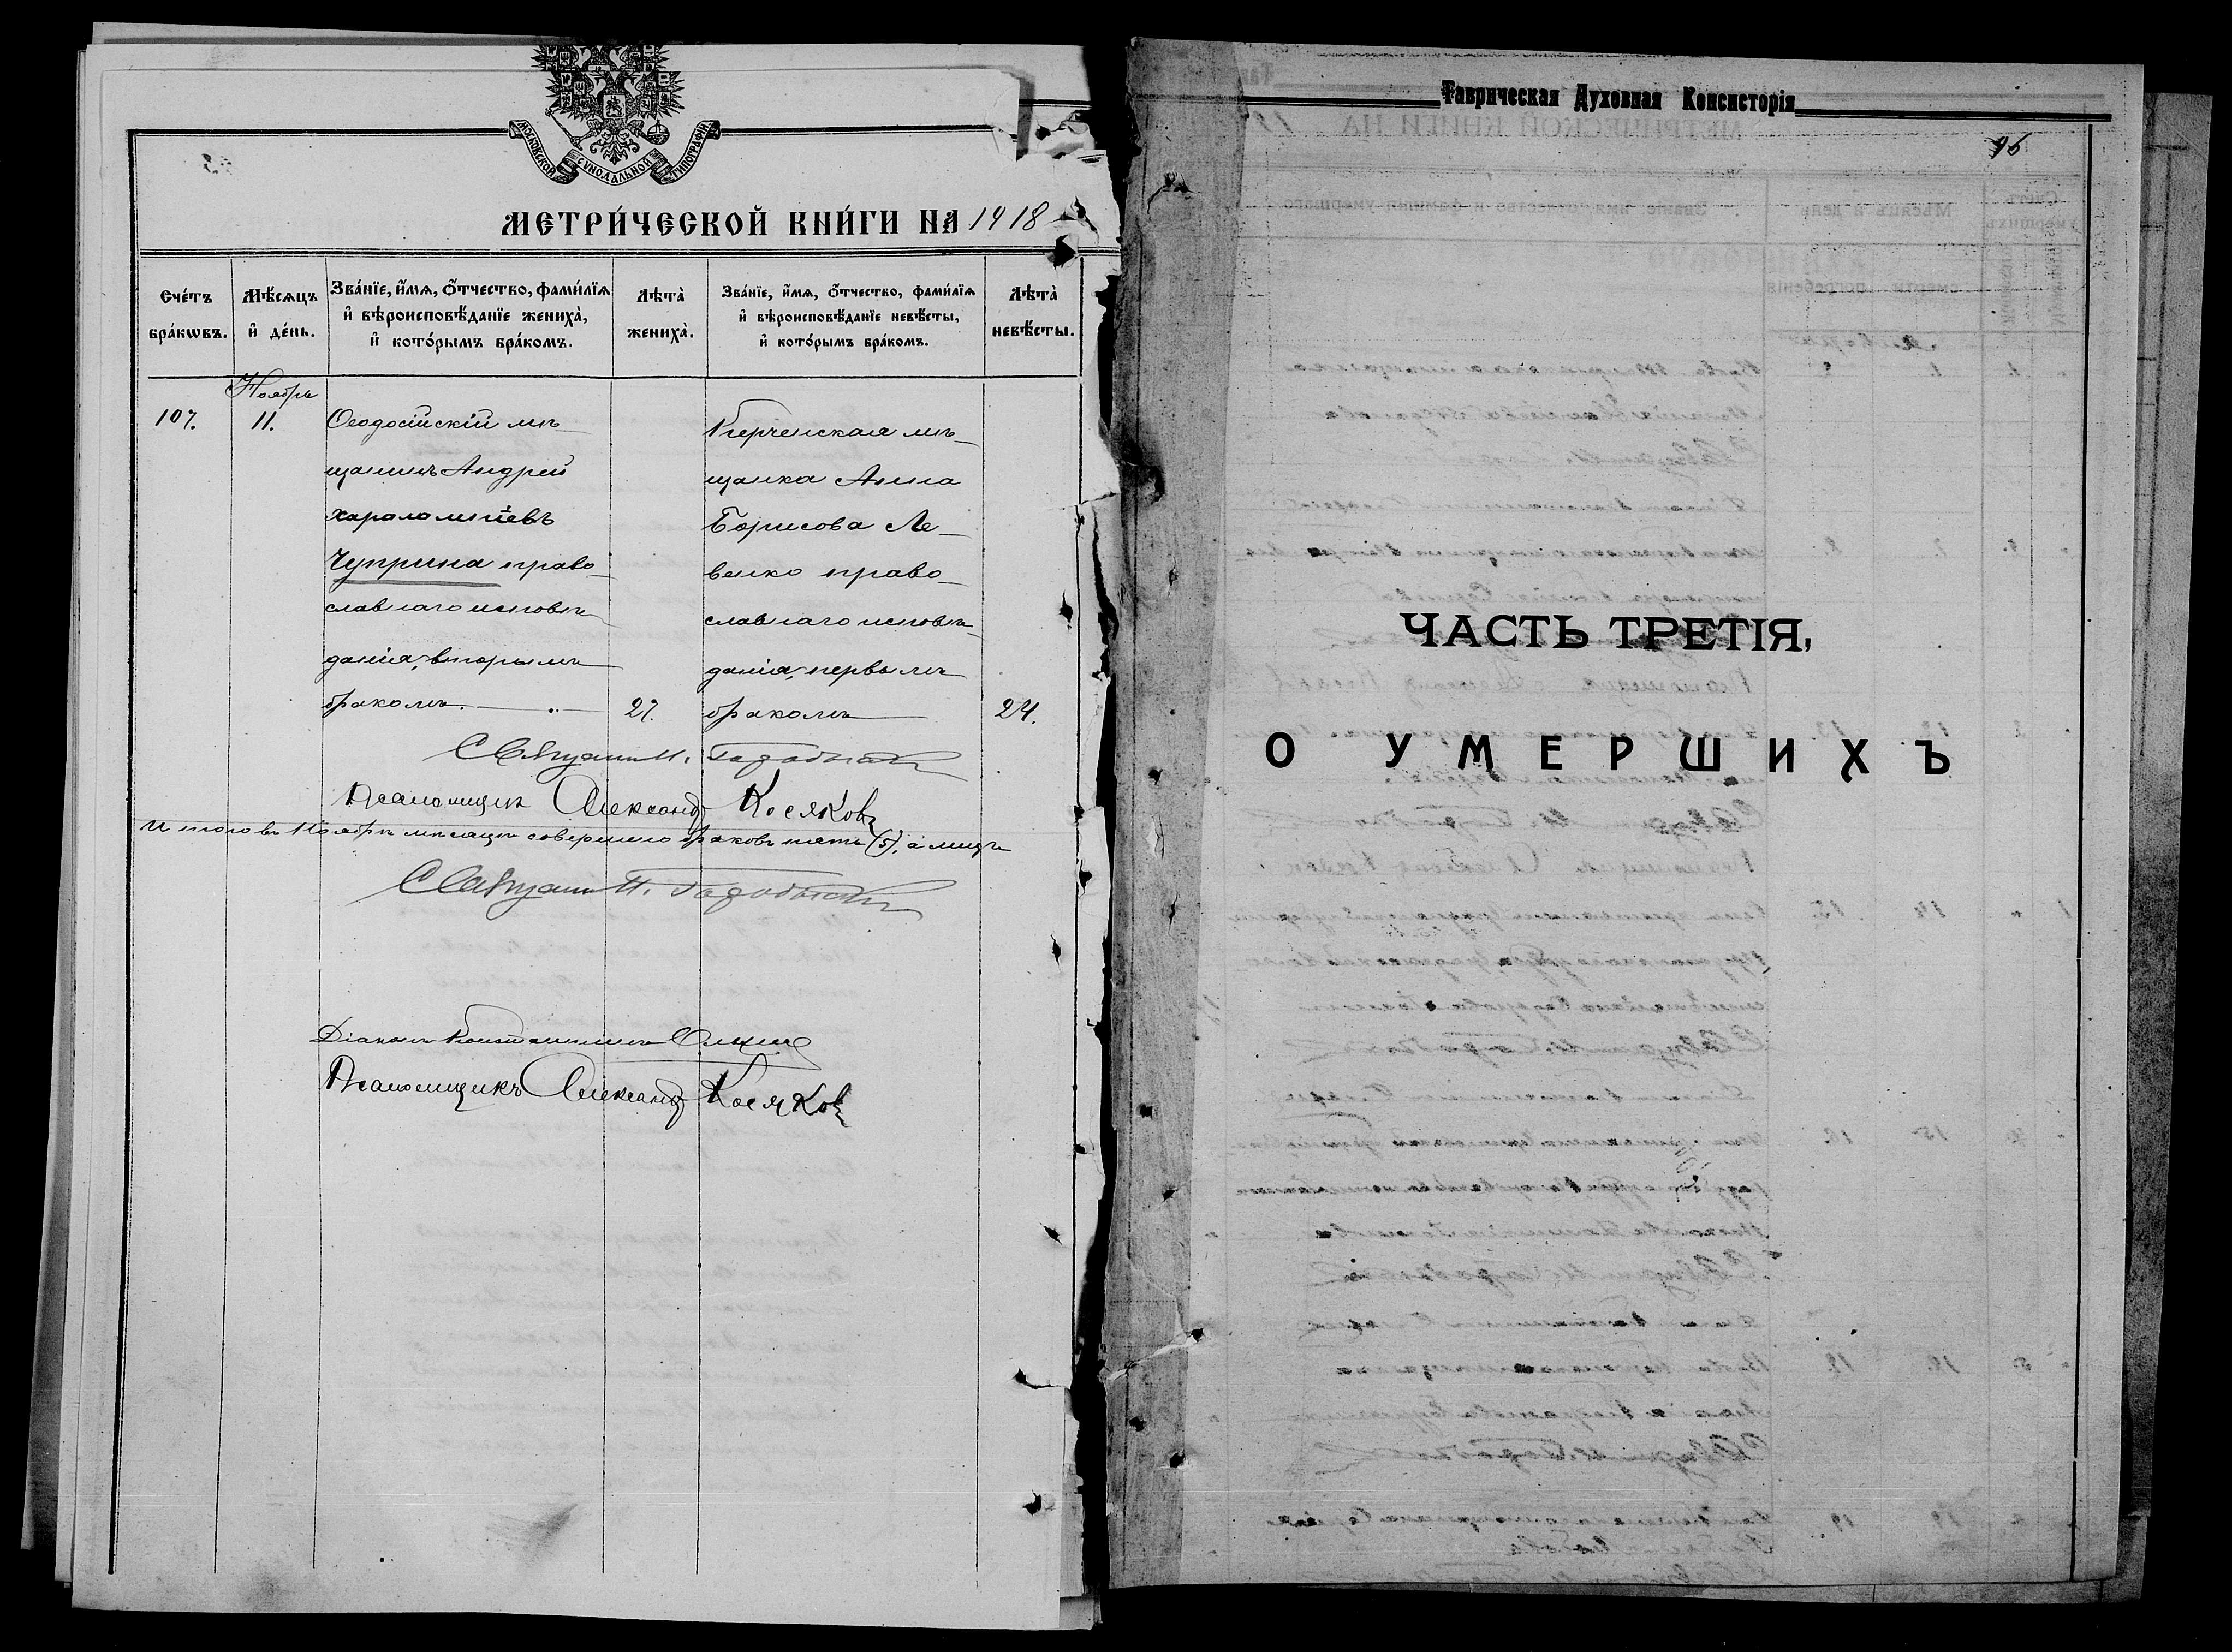 МОСКОВСКОЙ СѴНОДАЛЬНОЙ ТИПОГРАФІИ
МЕТРИ́ЧЕСКОЙ КНИ́ГИ НА 1918
Сче́тъ бра́кѡвъ.
Мѣ́сѧцъ и҆ де́нь.
Зва́нїе, и҆́мѧ, ѻ҆́тчество, фами́лїѧ и҆ вѣроисповѣ́данїе жениха̀, и҆ кото́рымъ бра́комъ.
Лѣта̀ жениха̀.
Зва́нїе, и҆́мѧ, ѻ҆́тчество, фами́лїѧ и҆ вѣроисповѣ́данїе невѣ́сты, и҆ кото́рымъ бра́комъ.
Лѣта̀ невѣ́сты.
107.
Ноябрь
11.
Ѳеодосійскій мѣ-
щанинъ Андрей
Харалампіевъ
Чуприна право-
славнаго исповѣ-
данія, вторымъ
бракомъ.
27.
Керченская мѣ-
щанка Анна
Борисова Ле-
венко право-
славнаго исповѣ-
данія, первымъ
бракомъ
24.
Священ. И.
Псаломщикъ Александръ Косяковъ
Итого въ Ноябрѣ мѣсяцѣ совершено браковъ пять (5), а лицъ
Священ. И.
Діаконъ Константинъ
Псаломщикъ Александръ Косяковъ
Таврическая Духовная Консисторія
96
ЧАСТЬ ТРЕТІЯ,
О УМЕРШИХЪ